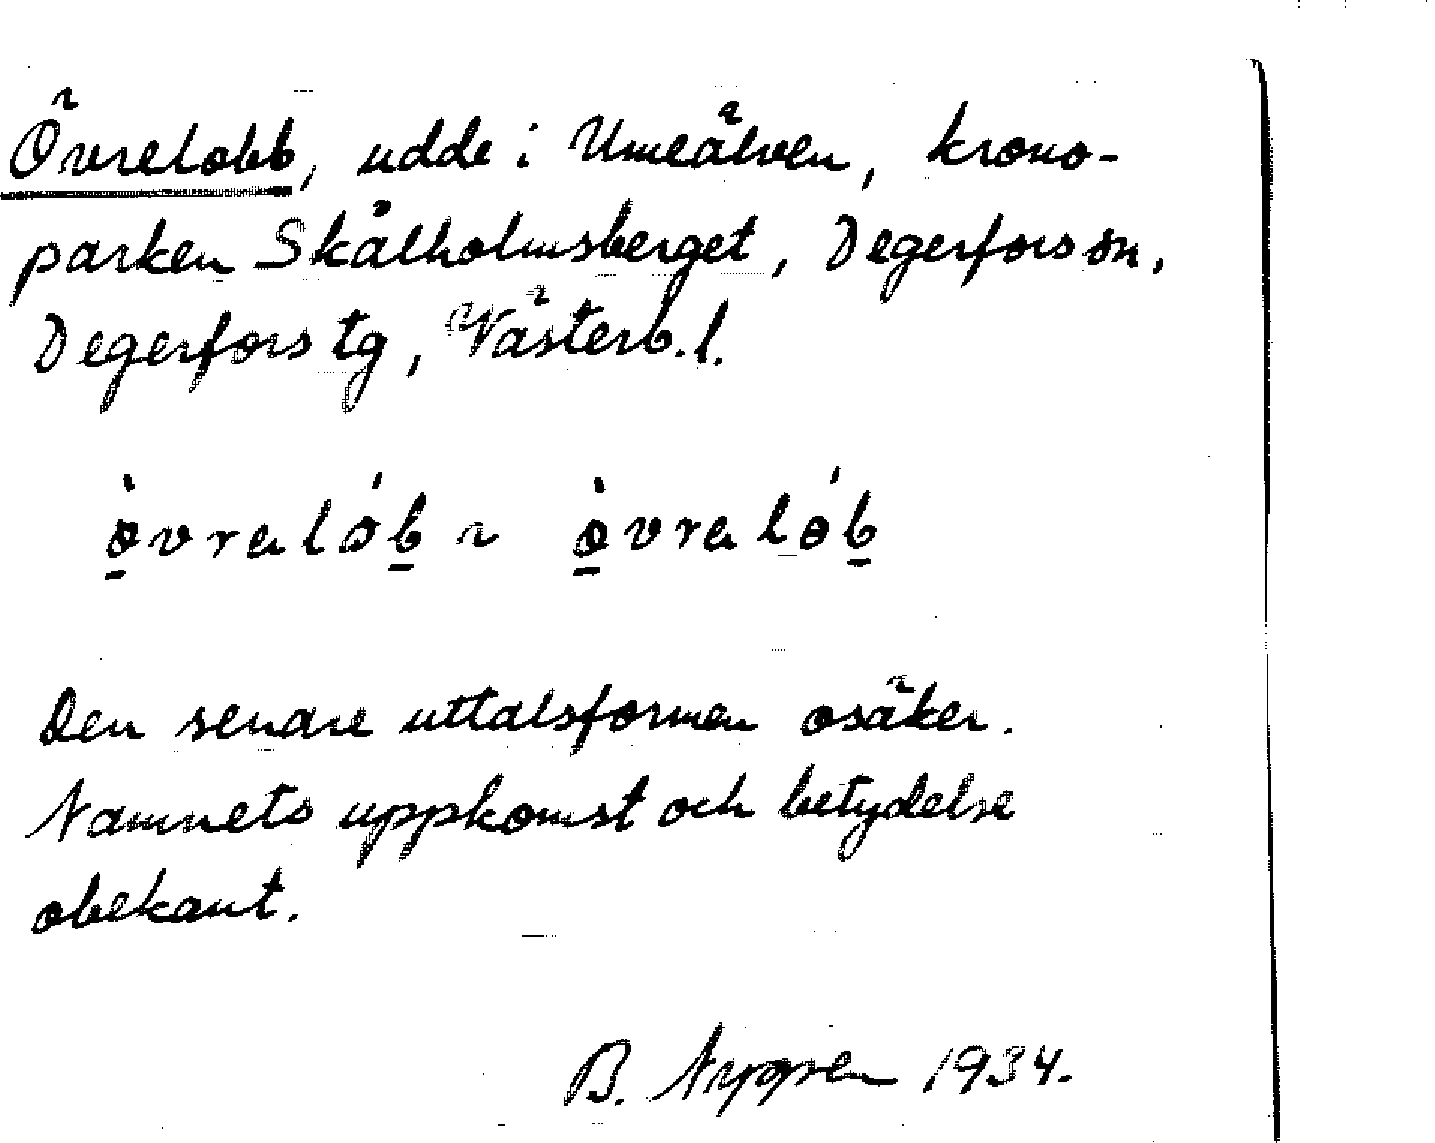 Övrelobb, udde i Umeälven, krono-
parken Skålholmsberget, Degerfors sn,
Degerfors tg, Västerb. l.
Den senare uttalsformen osäker.
Namnets uppkomst och betydelse
obekant.
B. Nygren 1934.